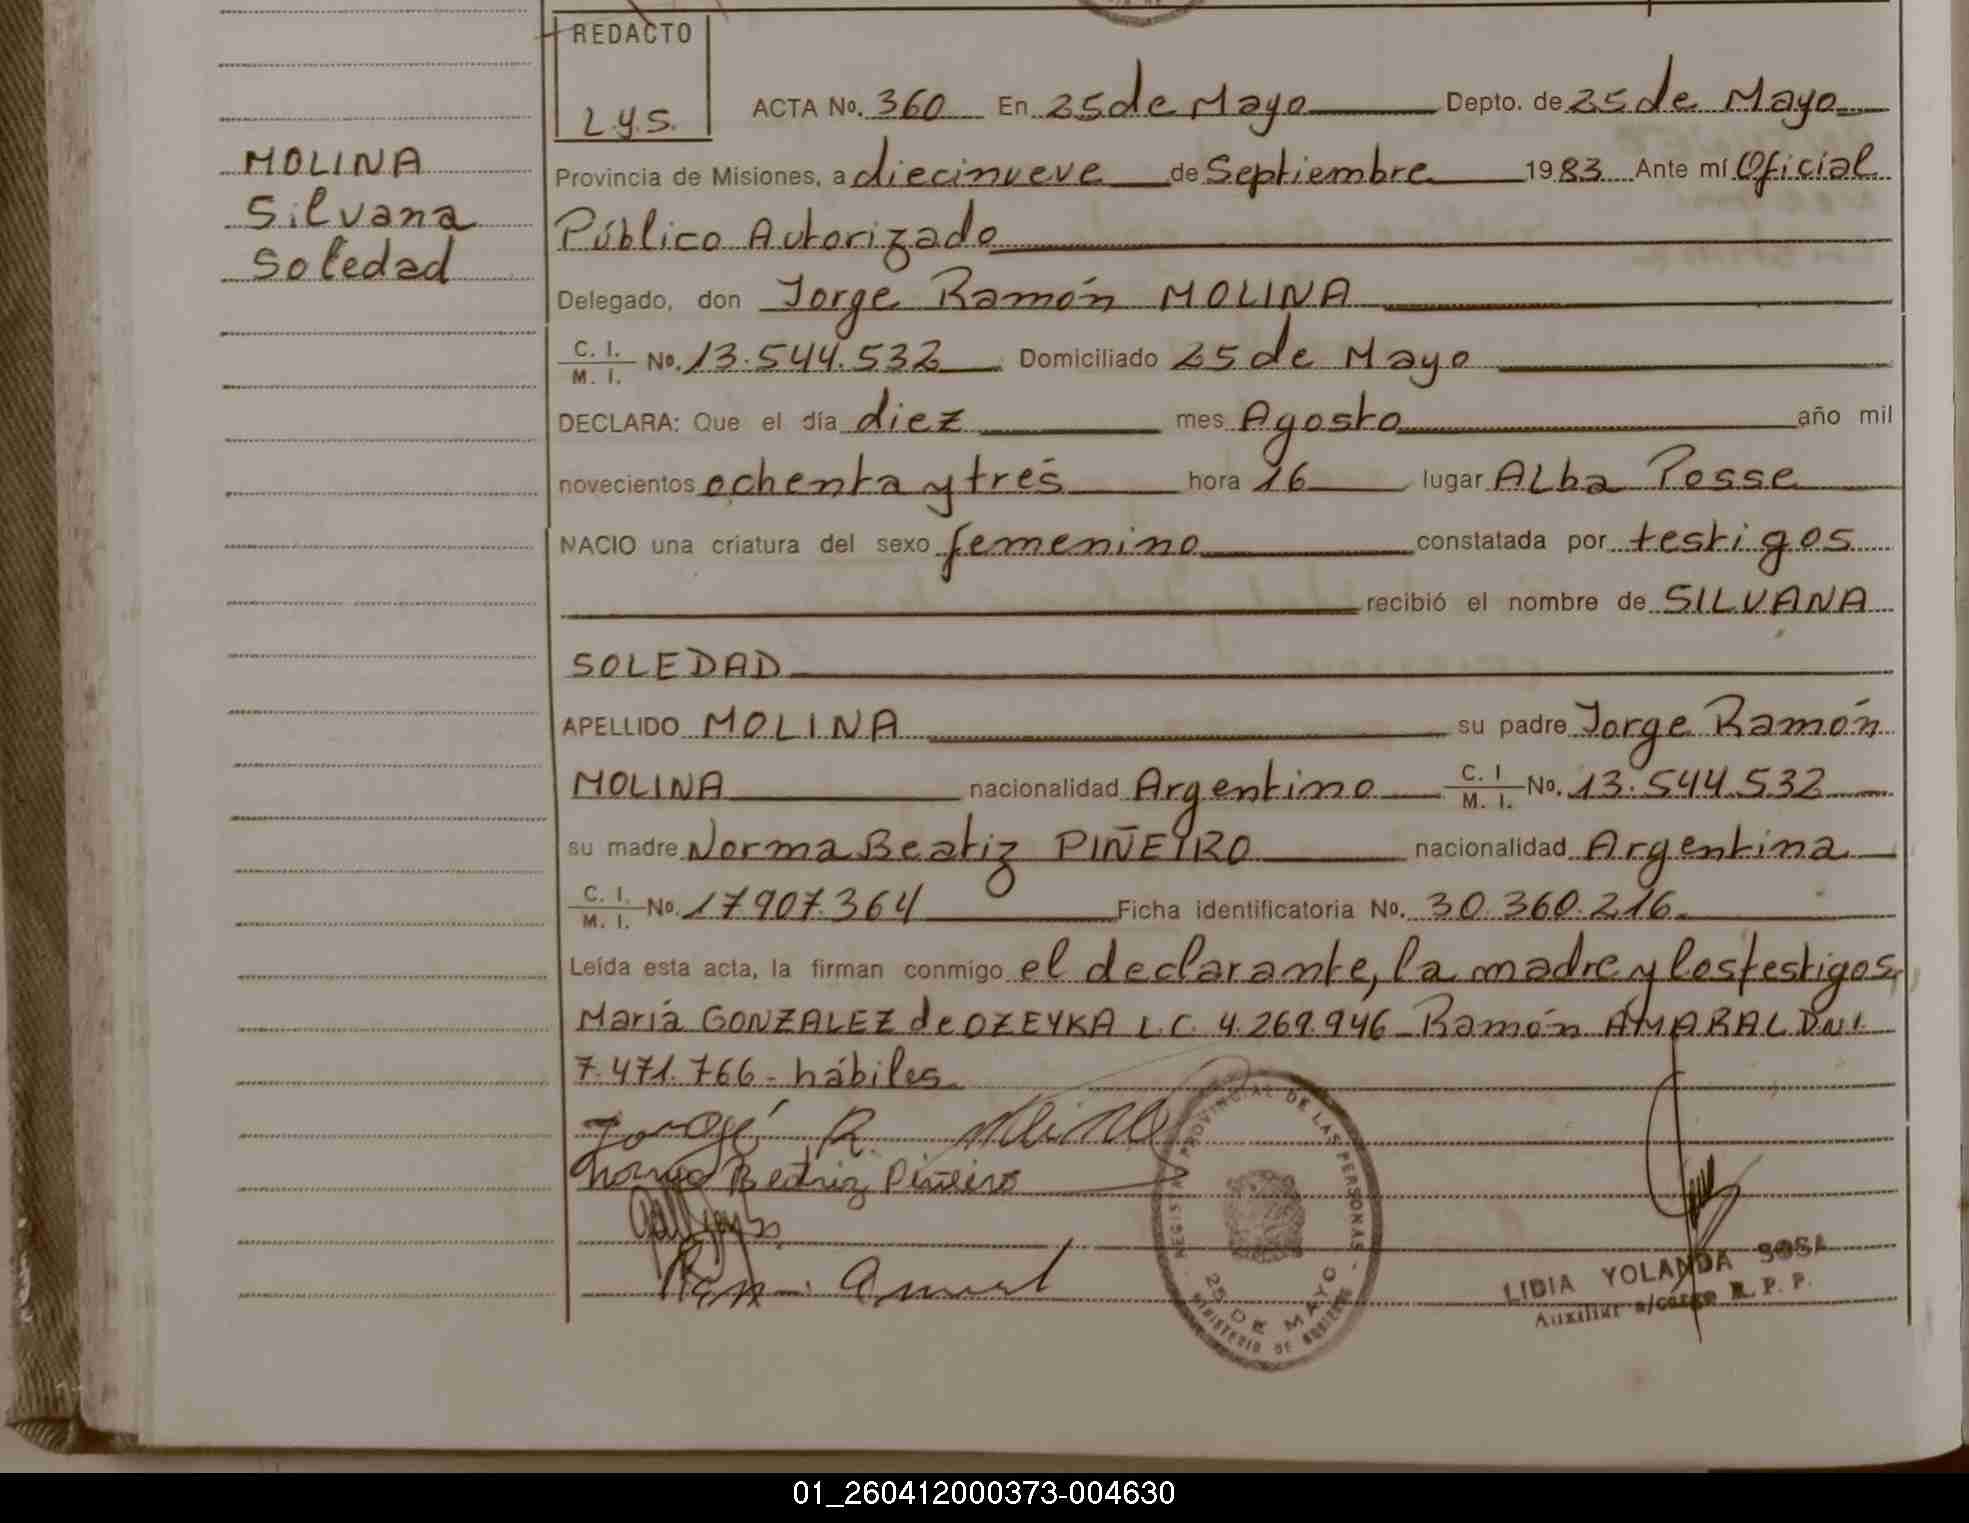 REDACTO
L.y.S.
ACTA No. 360 En 25 de Mayo Depto. de 25 de Mayo
MOLINA
Silvana
Soledad
Provincia de Misiones, a diecinueve de Septiembre 1983 Ante mí Oficial
Público Autorizado
Delegado, don Jorge Ramón MOLINA
C. I. M. I. No. 13.544.532 Domiciliado 25 de Mayo
DECLARA: Que el día diez mes Agosto año mil
novecientos ochenta y tres hora 16 lugar Alba Posse
NACIO una criatura del sexo femenino constatada por testigos
recibió el nombre de SILVANA
SOLEDAD
APELLIDO MOLINA su padre Jorge Ramón
MOLINA nacionalidad Argentino C. I M. I. No. 13.544.532
su madre Norma Beatiz PIÑEIRO nacionalidad Argentina
C. I. M. I. No. 17907.364 Ficha identificatoria No. 30.360.216
Leída esta acta, la firman conmigo el declarante, la madre y los testigos,
María GONZALEZ de OZEYKA L.C. 4.269.946 - Ramón AMARAL DNI
7.471.766 - hábiles
Jorge R. Molina
Norma Beatriz Piñeiro
REGISTRO PROVINCIAL DE LAS PERSONAS
25 DE MAYO
MINISTERIO DE GOBIERNO
LIDIA YOLANDA SOSA
Auxiliar a/cargo R. P. P.
01_260412000373-004630